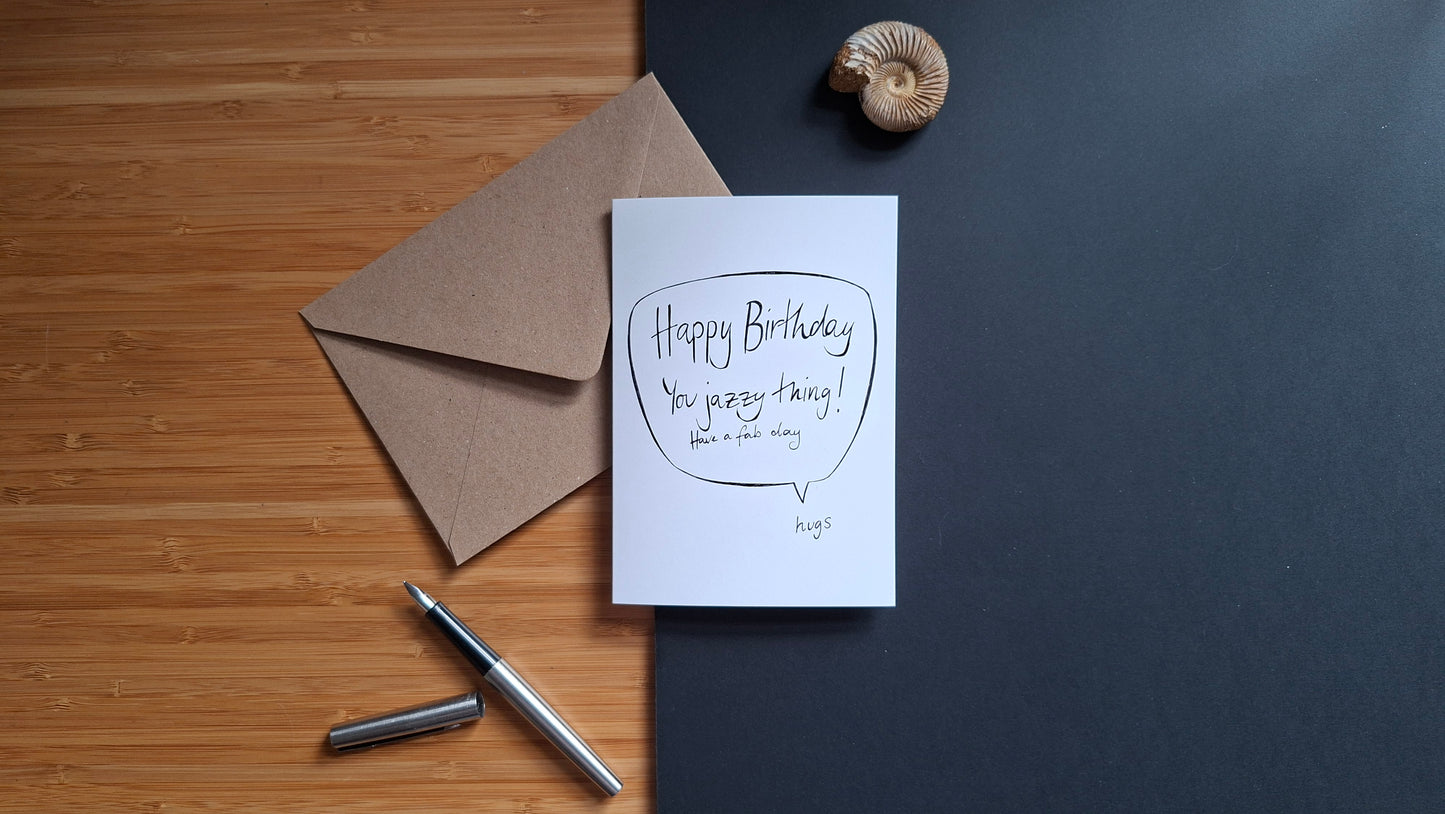 Happy Birthday
You jazzy thing!
Have a fab day
hugs